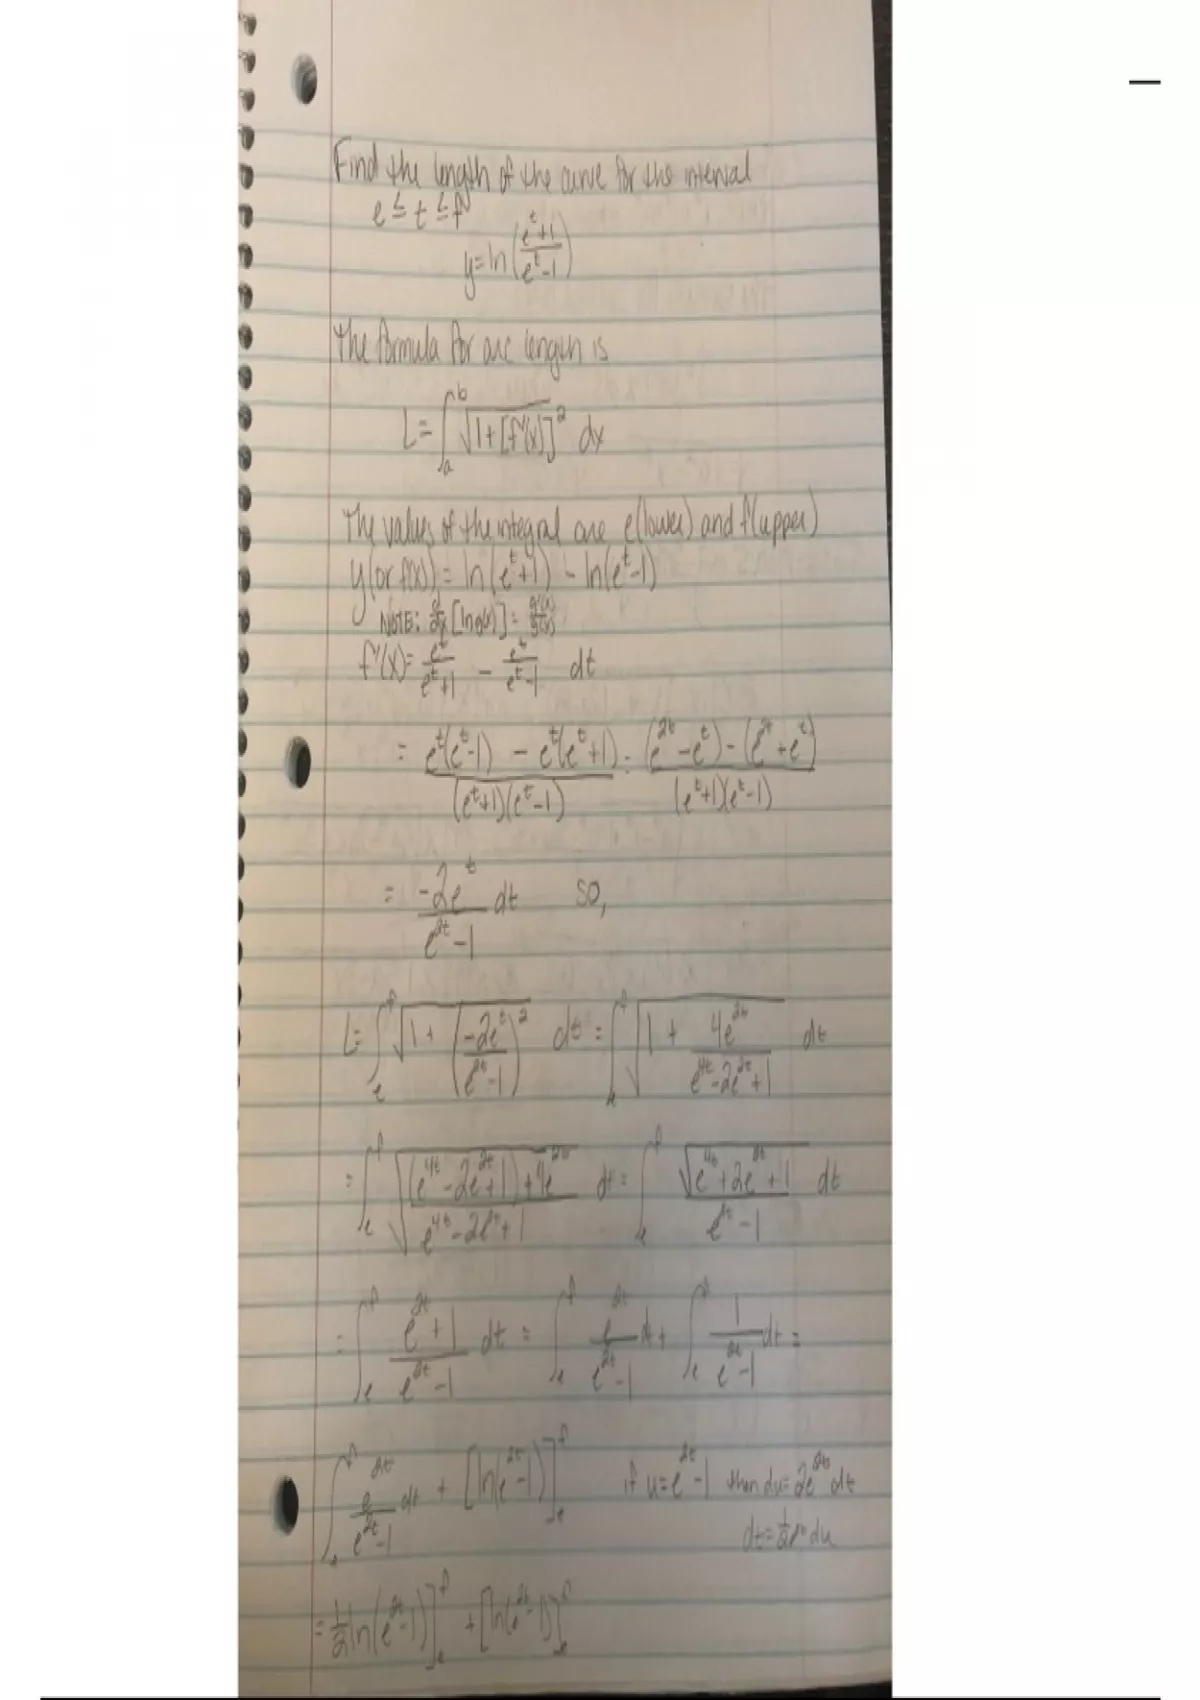 Find the length of the curve for the interval
e ≤ t ≤ f
y = ln((e^t+1)/(e^t-1))
The formula for arc length is
L = ∫_a^b √(1+[f'(x)])^2 dx
The values of the integral are e(lower) and f(upper)
y(or f(x)) = ln(e^t+1) - ln(e^t-1)
NOTE: d/dx [ln g(x)] = g'(x)/g(x)
f'(x) = e^t/(e^t+1) - e^t/(e^t-1) dt
= (e^t(e^t-1) - e^t(e^t+1))/((e^t+1)(e^t-1)) = ((e^2t - e^t) - (e^2t + e^t))/((e^t+1)(e^t-1))
= -2e^t/(e^2t-1) dt so,
L = ∫_e^f √(1 + (-2e^t/(e^2t-1))^2) dt = ∫_e^f √(1 + 4e^2t/(e^4t-2e^2t+1)) dt
= ∫_e^f √(((e^4t-2e^2t+1)+4e^2t)/(e^4t-2e^2t+1)) dt = ∫_e^f √(e^4t+2e^2t+1)/(e^2t-1) dt
= ∫_e^f (e^2t+1)/(e^2t-1) dt = ∫_e^f e^2t/(e^2t-1) dt + ∫_e^f 1/(e^2t-1) dt =
∫_e^f e^2t/(e^2t-1) dt + [ln(e^2t-1)]_e^f if u=e^2t-1 then du=2e^2t dt
dt = du
= 1/2 ln(e^2t-1)]_e^f + [ln(e^2t-1)]_e^f